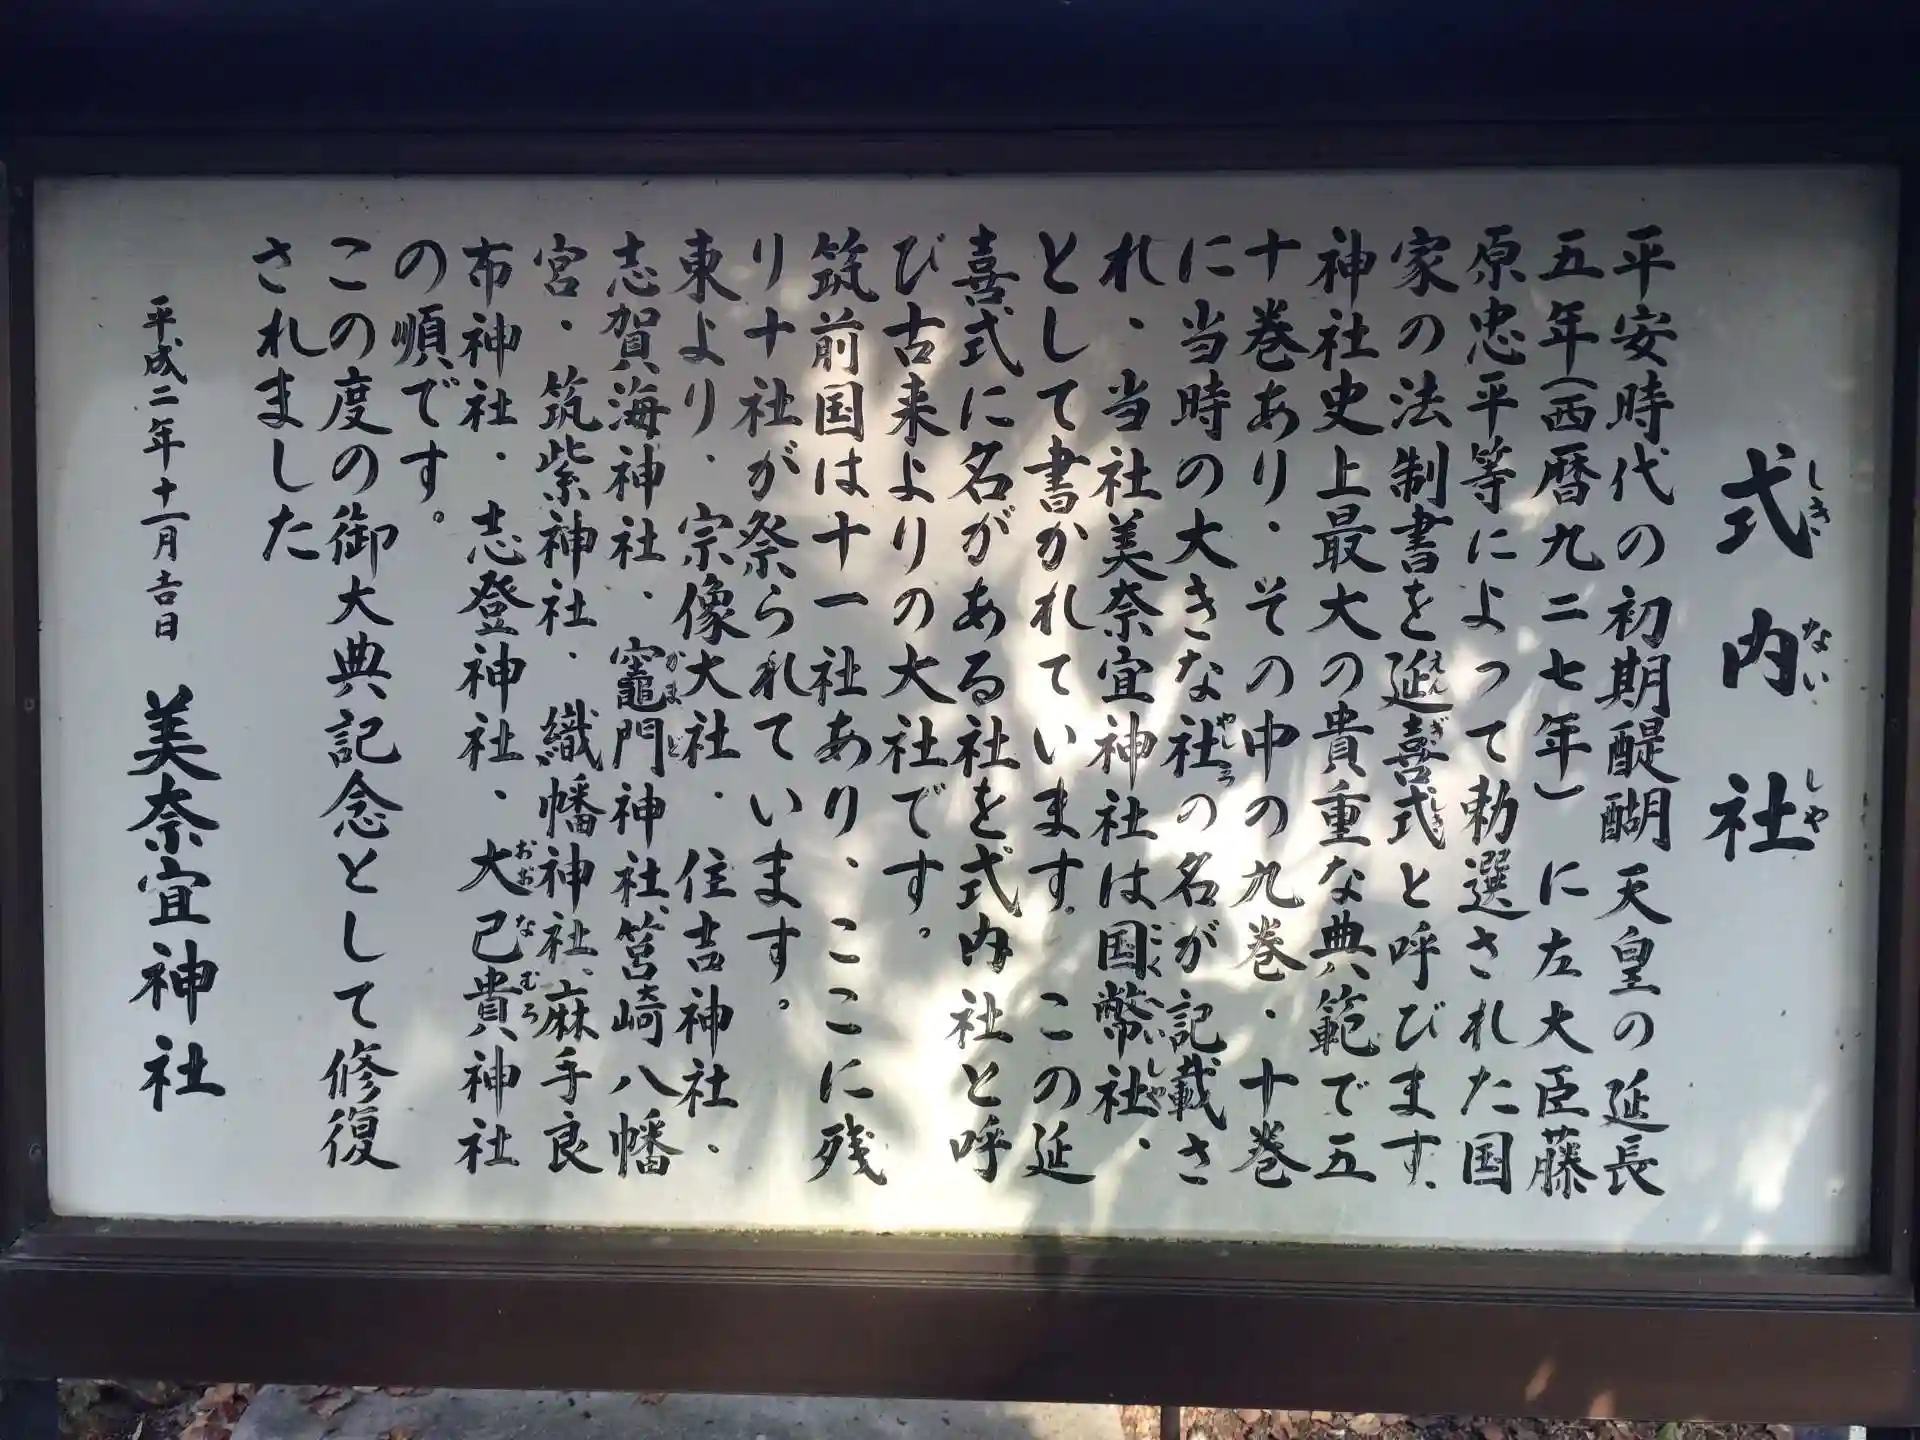 式内社
しき ない しや
平安時代の初期醍醐天皇の延長
五年(西暦九二七年)に左大臣藤
原忠平等によって勅選された国
家の法制書を延喜式と呼びます、
えん ぎ しき
神社史上最大の貴重な典範で五
十巻あり、その中の九巻、十巻
に当時の大きな社の名が記載さ
やしろ
れ、当社美奈宜神社は国幣社、
こく へい しや
として書かれています。この延
喜式に名がある社を式内社と呼
び古来よりの大社です。
筑前国は十一社あり、ここに残
り十社が祭られています。
東より、宗像大社、住吉神社、
志賀海神社、竈門神社、筥崎八幡
がま ど
宮、筑紫神社、織幡神社、麻手良
布神社、志登神社、大己貴神社
おお な むろ
の順です。
この度の御大典記念として修復
されました
平成二年十一月吉日 美奈宜神社